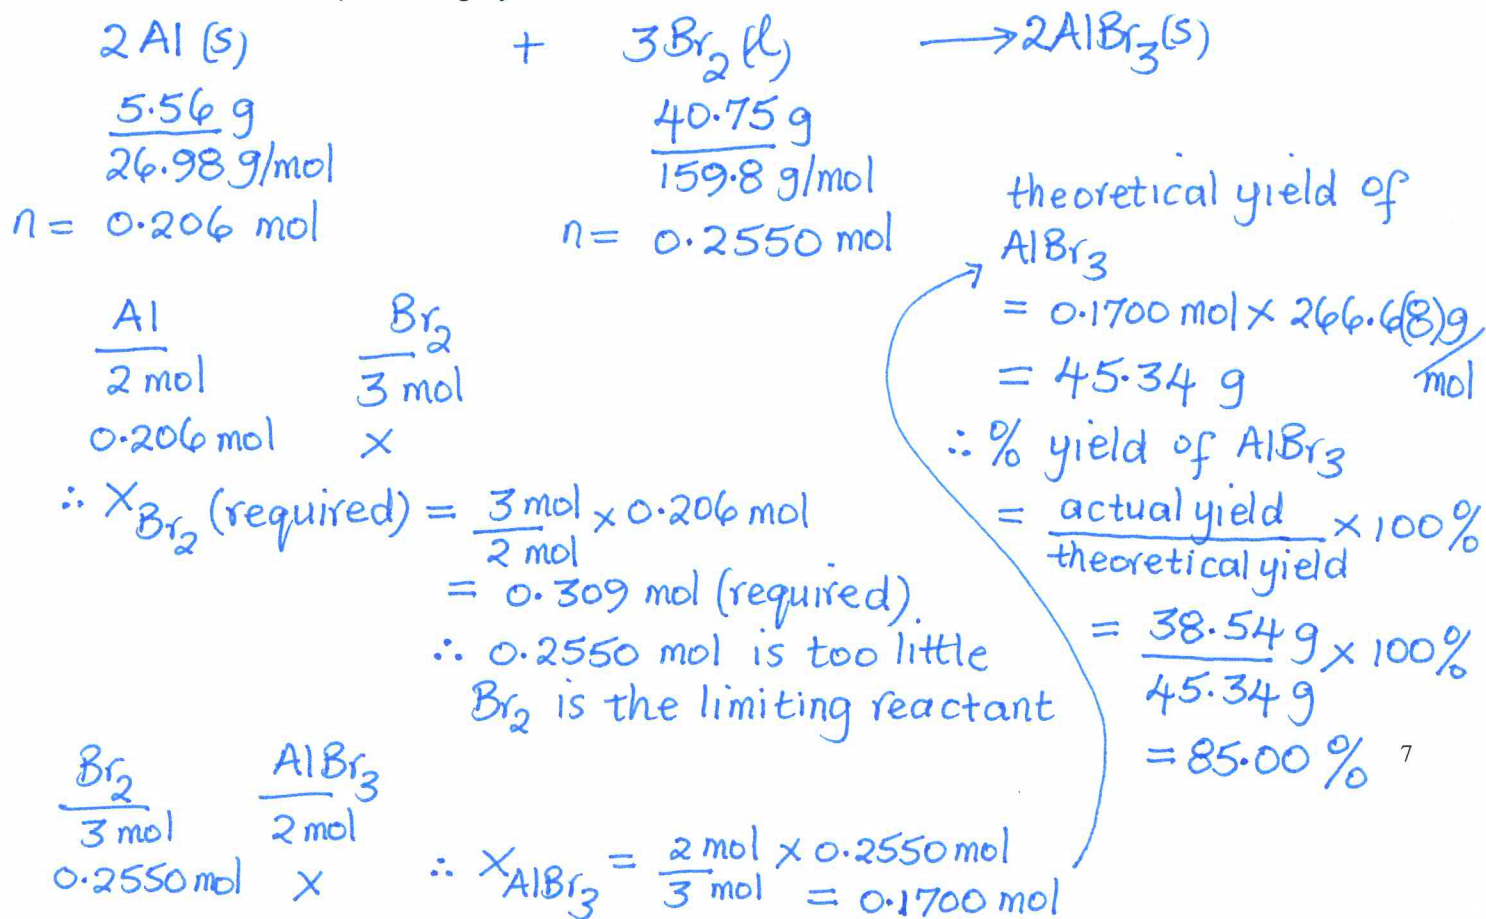 2Al (s) + 3Br₂ (l) ⟶ 2AlBr₃(s)
5.56 g
26.98 g/mol
n = 0.206 mol
40.75 g
159.8 g/mol
n = 0.2550 mol
Al Br₂
2 mol 3 mol
0.206 mol x
∴ x Br₂ (required) = 3 mol / 2 mol × 0.206 mol
= 0.309 mol (required).
∴ 0.2550 mol is too little
Br₂ is the limiting reactant
Br₂ AlBr₃
3 mol 2 mol
0.2550 mol x
∴ x AlBr₃ = 2 mol / 3 mol × 0.2550 mol
= 0.1700 mol
theoretical yield of
AlBr₃
= 0.1700 mol × 266.6(8)g/mol
= 45.34 g
∴ % yield of AlBr₃
= actual yield / theoretical yield × 100%
= 38.54 g / 45.34 g × 100%
= 85.00 %
7